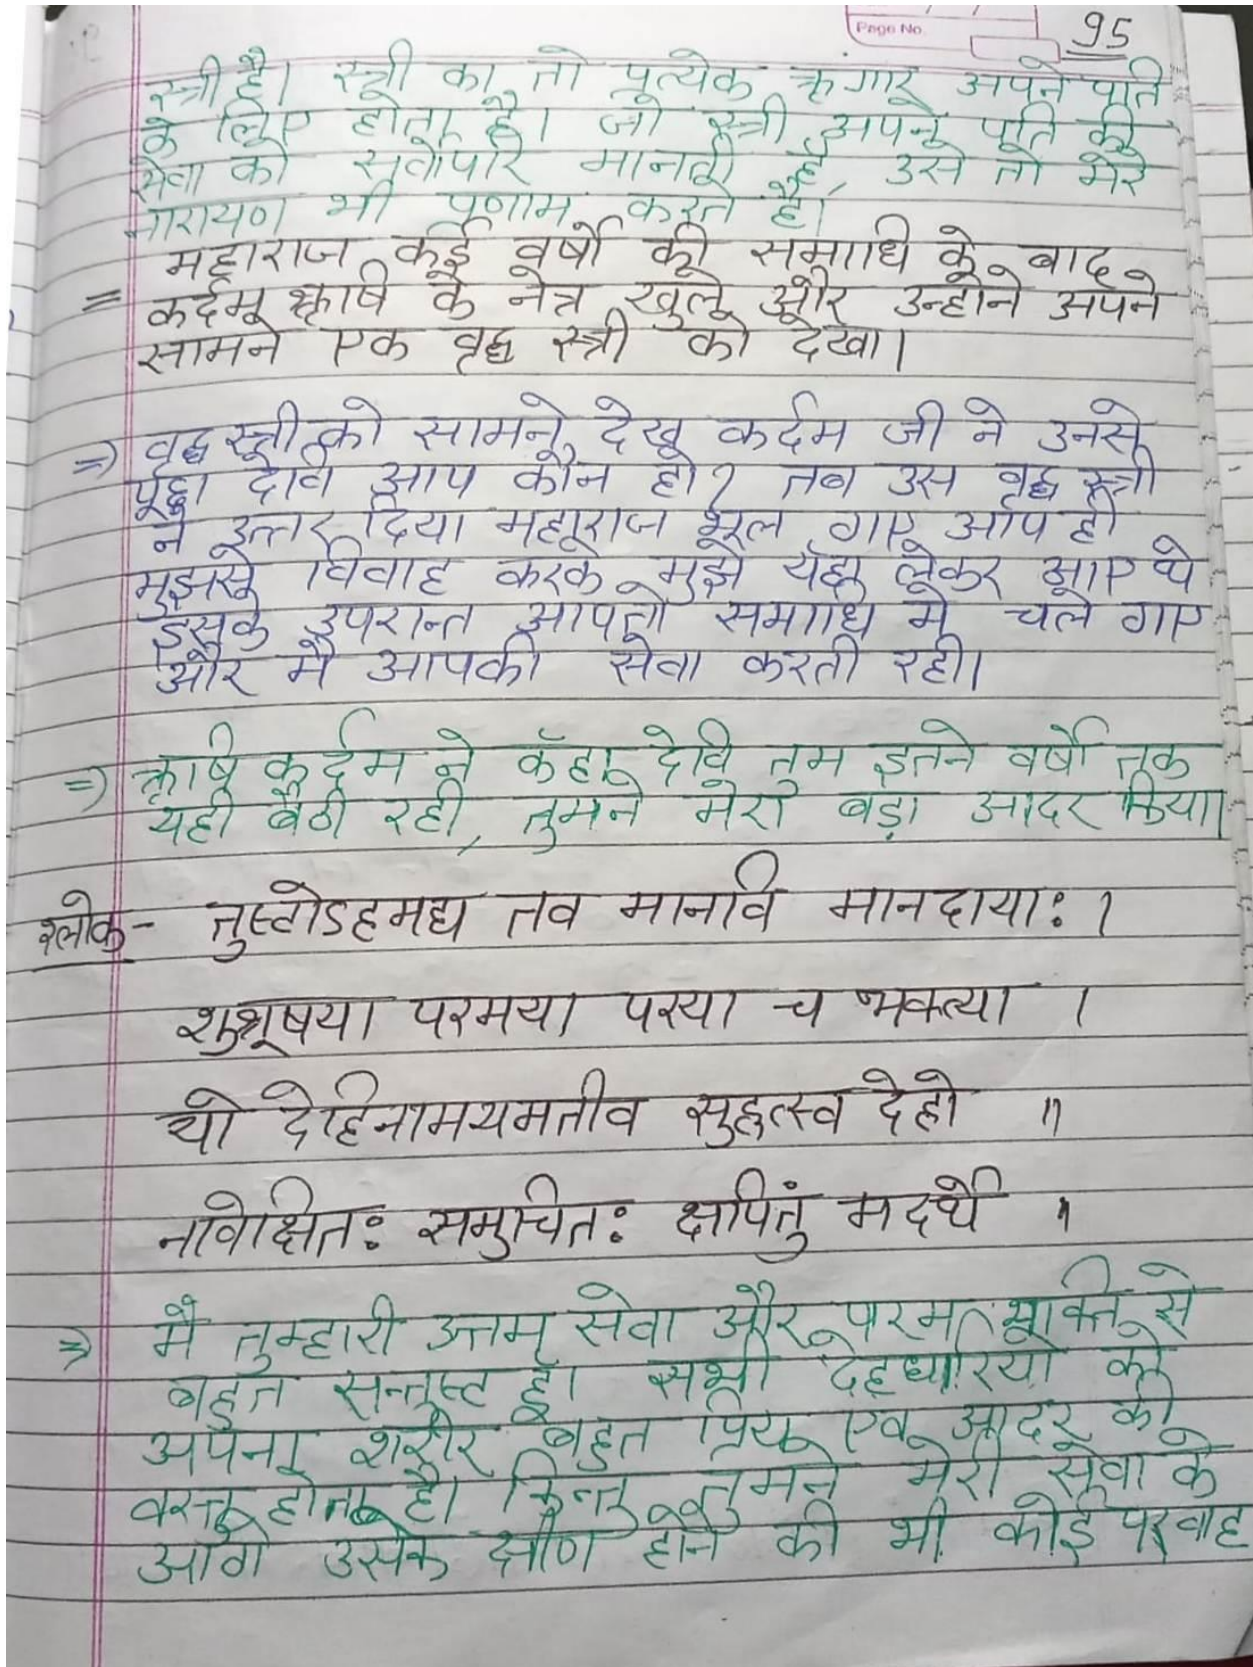 Page No. 95
स्त्री है। स्त्री का तो प्रत्येक श्रृंगार अपने पति
के लिए होता है। जो स्त्री अपने पति की
सेवा को सर्वोपरि मानती है, उसे तो मेरे
नारायण भी प्रणाम करते है।
महाराज कई वर्षो की समाधि के बाद
= कर्दम ऋषि के नेत्र खुले और उन्होने अपने
सामने एक वृद्ध स्त्री को देखा।
=> वृद्ध स्त्री को सामने देख कर्दम जी ने उनसे
पूछा देवि आप कौन हो? तब उस वृद्ध स्त्री
ने उत्तर दिया महाराज भूल गए आप ही
मुझसे विवाह करके मुझे यँहा लेकर आए थे
इसके उपरान्त आपतो समाधि मे चले गए
और मै आपकी सेवा करती रही।
=> ऋषि कर्दम ने कँहा देवि तुम इतने वर्षो तक
यही बैठी रही, तुमने मेरा बड़ा आदर किया।
श्लोक- तुस्टोऽहमद्य तव मानवि मानदायाः ।
शुश्रूषया परमया परया च भक्त्या ।
यो देहिनामयमतीव सुहृत्स्व देहो ॥
नावेक्षितः समुचितः क्षपितुं मदर्थे ।
=> मै तुम्हारी उत्तम सेवा और परम भक्ति से
बहुत सन्तुष्ट हूँ। सभी देहधारियो को
अपना शरीर बहुत प्रिय एव आदर की
वस्तु होता है। किन्तु तुमने मेरी सेवा के
आगे उसके क्षीण होने की भी कोई परवाह